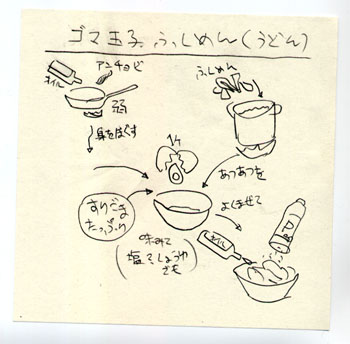 ゴマ玉子 ふしめん(うどん)
アンチョビ
オイル
弱
身をほぐす
ふしめん
あつあつを
1ケ
すりごま
たっぷり
よくまぜて
オイル
味みて
塩 や しょうゆ
(
)